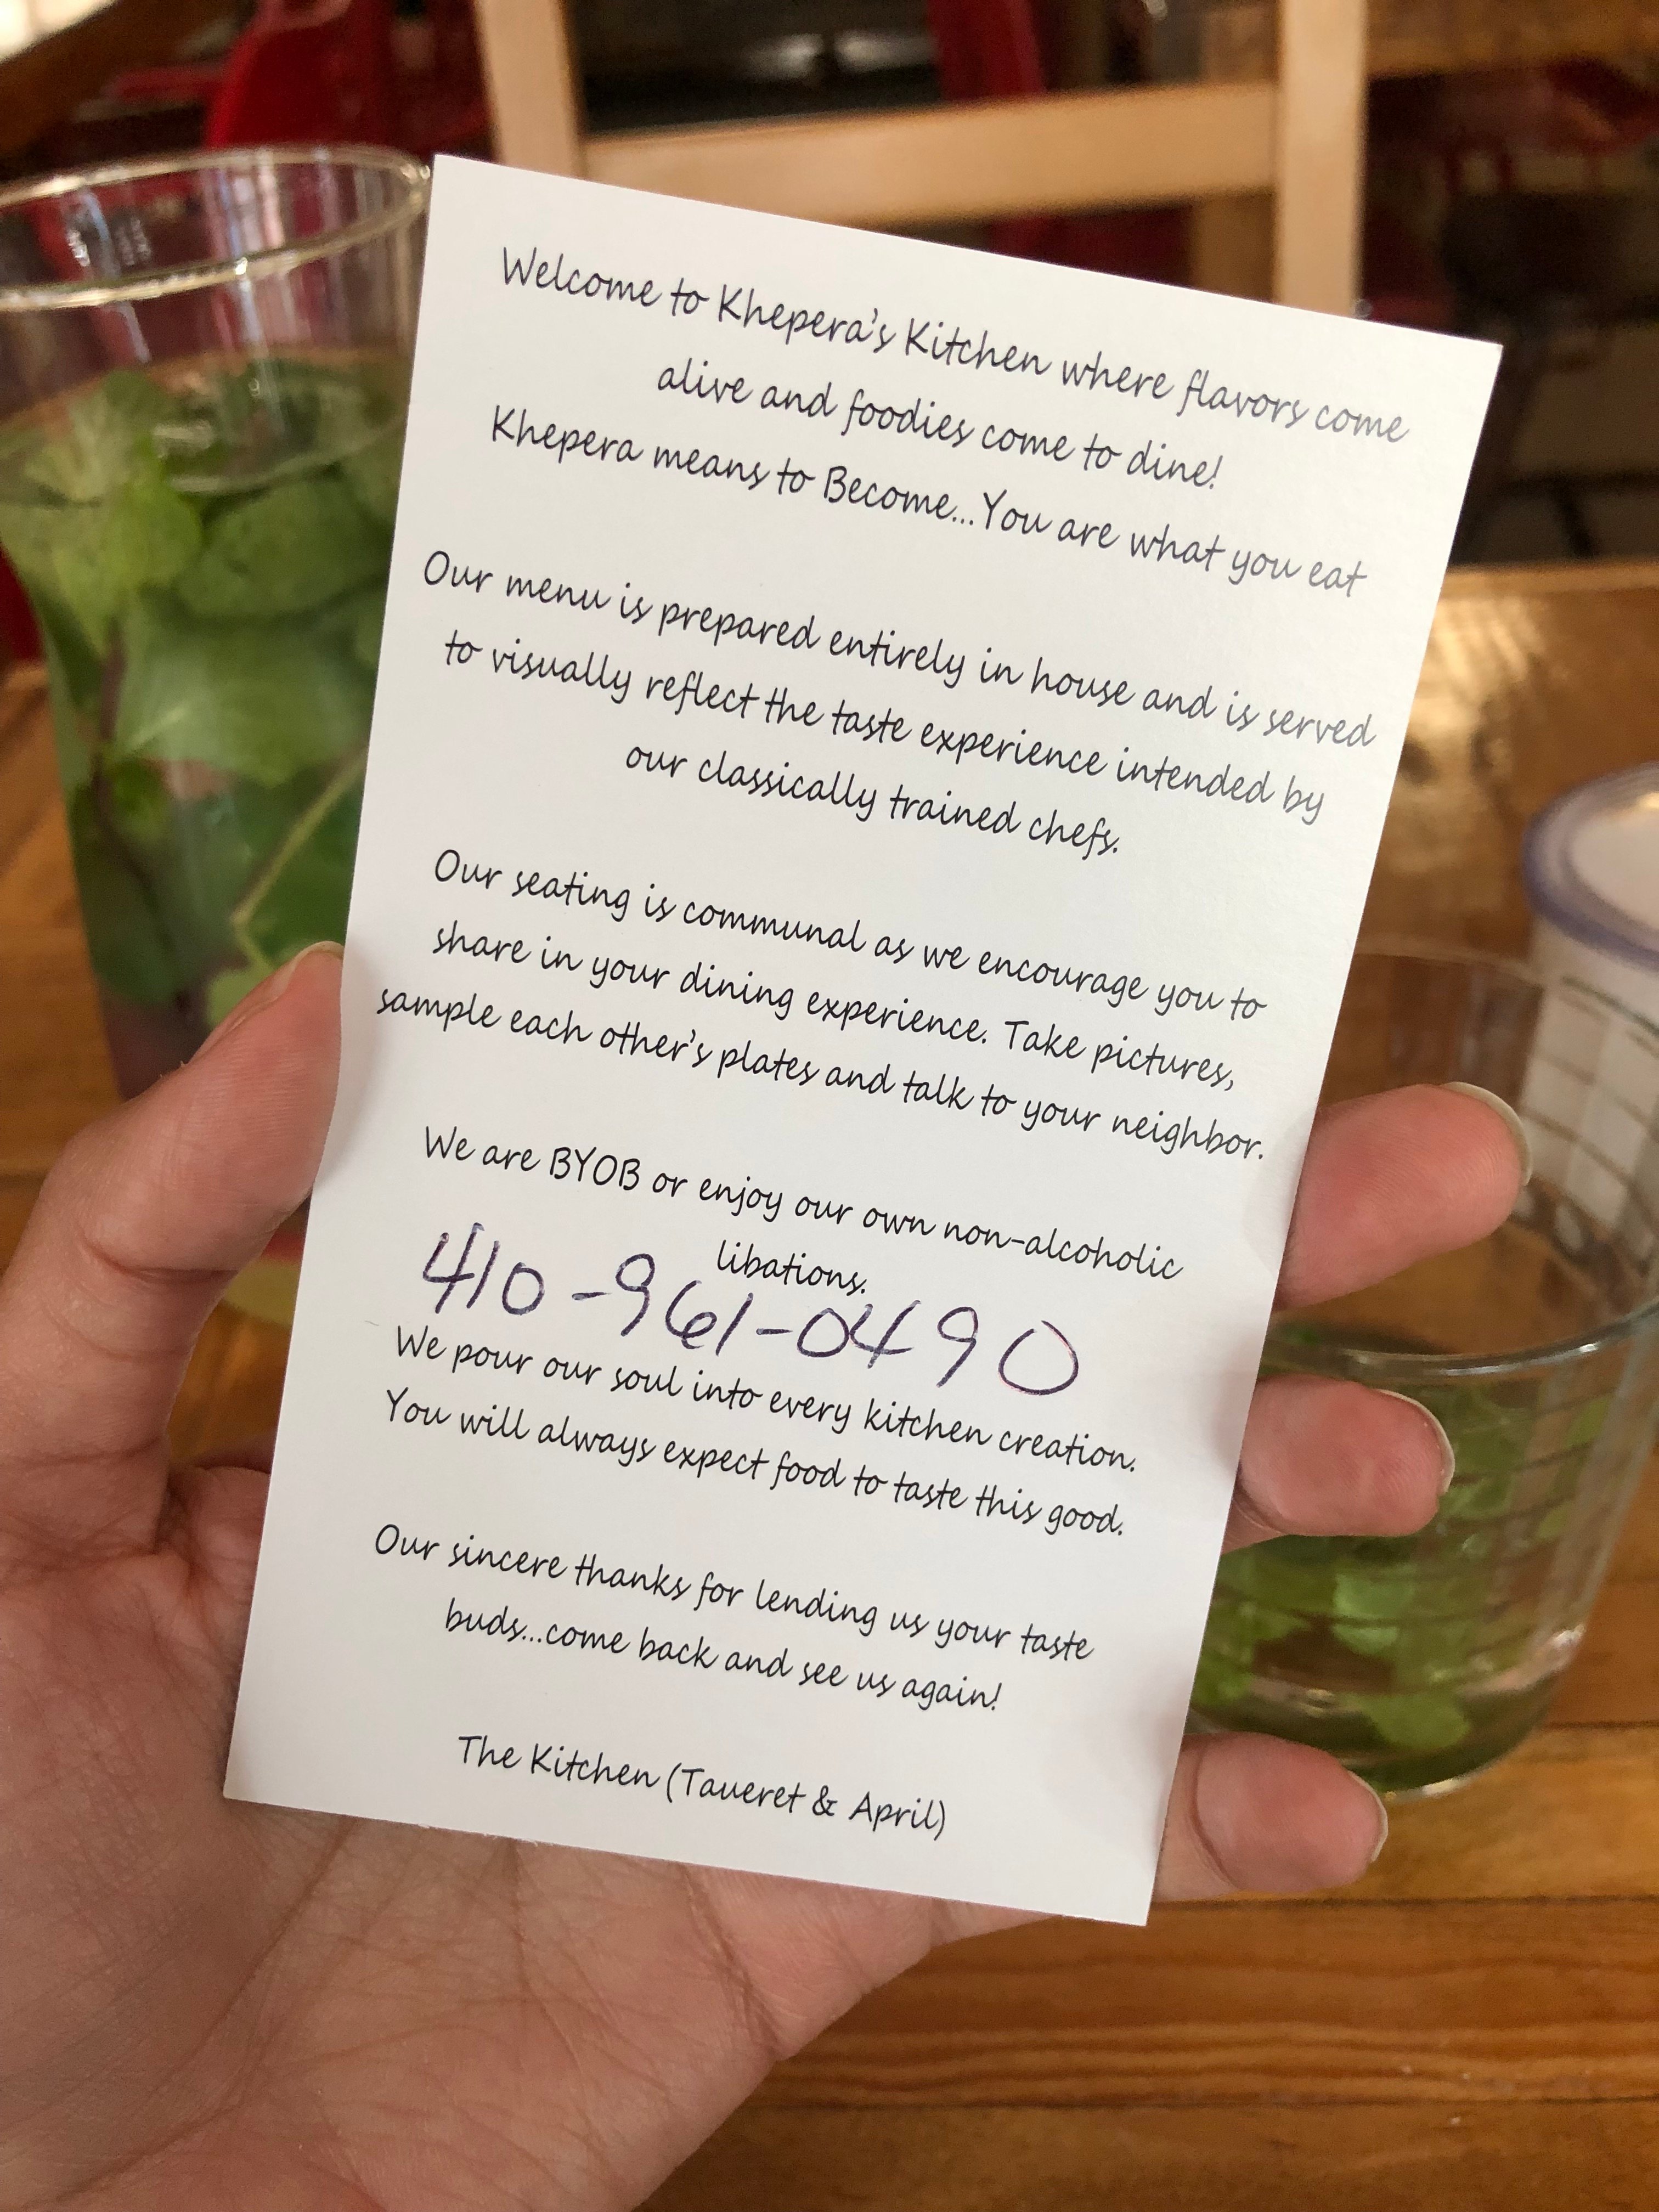 Welcome to Khepera's Kitchen where flavors come
alive and foodies come to dine!
Khepera means to Become...You are what you eat
Our menu is prepared entirely in house and is served
to visually reflect the taste experience intended by
our classically trained chefs.
Our seating is communal as we encourage you to
share in your dining experience. Take pictures,
sample each other's plates and talk to your neighbor.
We are BYOB or enjoy our own non-alcoholic
libations.
410-961-0490
We pour our soul into every kitchen creation.
You will always expect food to taste this good.
Our sincere thanks for lending us your taste
buds...come back and see us again!
The Kitchen (Taueret & April)